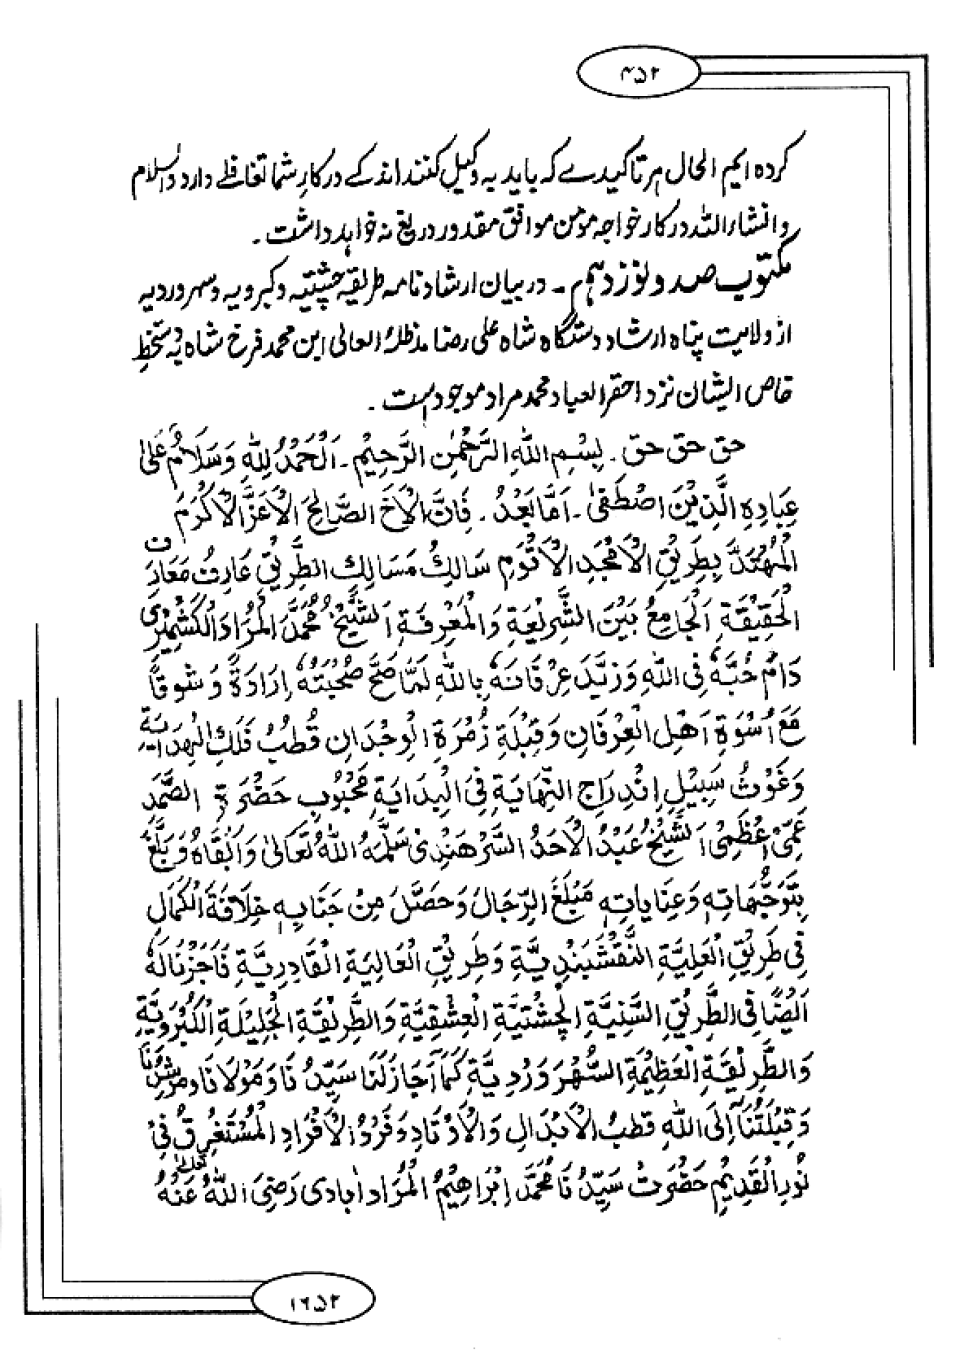 ۴۵۲
کرده ایم الحال هر تاکیدے که باید به وکیل کنند اند کے در کارِ شما تغافلے دارد والسلام
و انشاء الله در کار خواجه مومن موافق مقدور دریغ نہ خواہد داشت ۔
مکتوب صد و نوزدہم ۔ در بیان ارشاد نامه طریقہ چشتیہ و کبرویہ و سہروردیہ
از ولایت پناہ ارشاد دستگاہ شاہ علی رضا مدظلہٗ العالی ابن محمد فرخ شاہ بہ دستخطِ
خاص الیشان نزد احقر العباد محمد مراد موجود است ۔
حق حق حق ۔ بِسْمِ اللهِ الرَّحْمٰنِ الرَّحِيْمِ ۔ اَلْحَمْدُ لِلّٰهِ وَسَلَامٌ عَلىٰ
عِبَادِهِ الَّذِيْنَ اصْطَفىٰ ۔ اَمَّا بَعْدُ ۔ فَاِنَّ الْاَخَ الصَّالِحَ الْاَعَزَّ الْاَكْرَمَ
الْمُهْتَدَّ بِطَرِيْقِ الْاَمْجَدِ الْاَقْوَمِ سَالِكُ مَسَالِكِ الطَّرِيْقِ عَارِفُ مَعَارِف
الْحَقِيْقَةِ اَلْجَامِعُ بَيْنَ الشَّرِيْعَةِ وَالْمَعْرِفَةِ اَلشَّيْخُ مُحَمَّدَ الْمُرَادَ الْكَشْمِيْرِى
دَامَ حُبَّهٗ فِى اللهِ وَزِيْدَ عِرْفَانَهٗ بِاللهِ لَمَّا صَحَّ صُحْبَتُهٗ اِرَادَةً وَشَوْقًا
مَعَ اُسْوَةِ اَهْلِ الْعِرْفَانِ وَقِبْلَةِ زُمْرَةِ الْوِجْدَانِ قُطْبُ فَلَكِ الْهِدَايَةِ
وَغَوْثُ سَبِيْلِ اِنْدِرَاجِ النِّهَايَةِ فِى الْبِدَايَةِ مَحْبُوْبِ حَضْرَةِ الصَّمَدِ
عَمِّىْ اَعْظَمِىْ اَلشَّيْخُ عَبْدُ الْاَحَدُ السَّرْهِنْدِىْ سَلَّمَهُ اللهُ تَعَالىٰ وَاَبْقَاهُ وَبَلَّغَ
بِتَوَجُّهَاتِهٖ وَعِنَايَاتِهٖ مَبْلَغَ الرِّجَالِ وَحَصَّلَ مِنْ جَنَابِهٖ خِلَافَةَ الْكَمَالِ
فِى طَرِيْقِ الْعَلِيَّةِ النَّقْشَبَنْدِيَّةِ وَطَرِيْقِ الْعَالِيَةِ الْقَادِرِيَّةِ فَاَجَزْنَا لَهٗ
اَيْضًا فِى الطَّرِيْقِ السَّنِيَّةِ الْچِشْتِيَّةِ الْعِشْقِيَّةِ وَالطَّرِيْقَةِ الْجَلِيْلَةِ الْكُبْرُوِيَّةِ
وَالطَّرِيْقَةِ الْعَظِيْمَةِ السُّهْرَوَرْدِيَّةِ كَمَا اَجَازَلَنَا سَيِّدُنَا وَمَوْلَانَا وَمُرْشِدُنَا
وَقِبْلَتُنَا اِلَى اللهِ قُطْبُ الْاَبْدَالِ وَالْاَوْتَادِ وَفَرْدُ الْاَفْرَادِ الْمُسْتَغْرِقُ فِىْ
نُوْرِ الْقَدِيْمِ حَضْرَتْ سَيِّدُنَا مُحَمَّدَ اِبْرَاهِيْمُ الْمُرَاد اٰبَادِى رَضِىَ اللهُ تعالىٰ عَنْهُ
۱۶۵۲